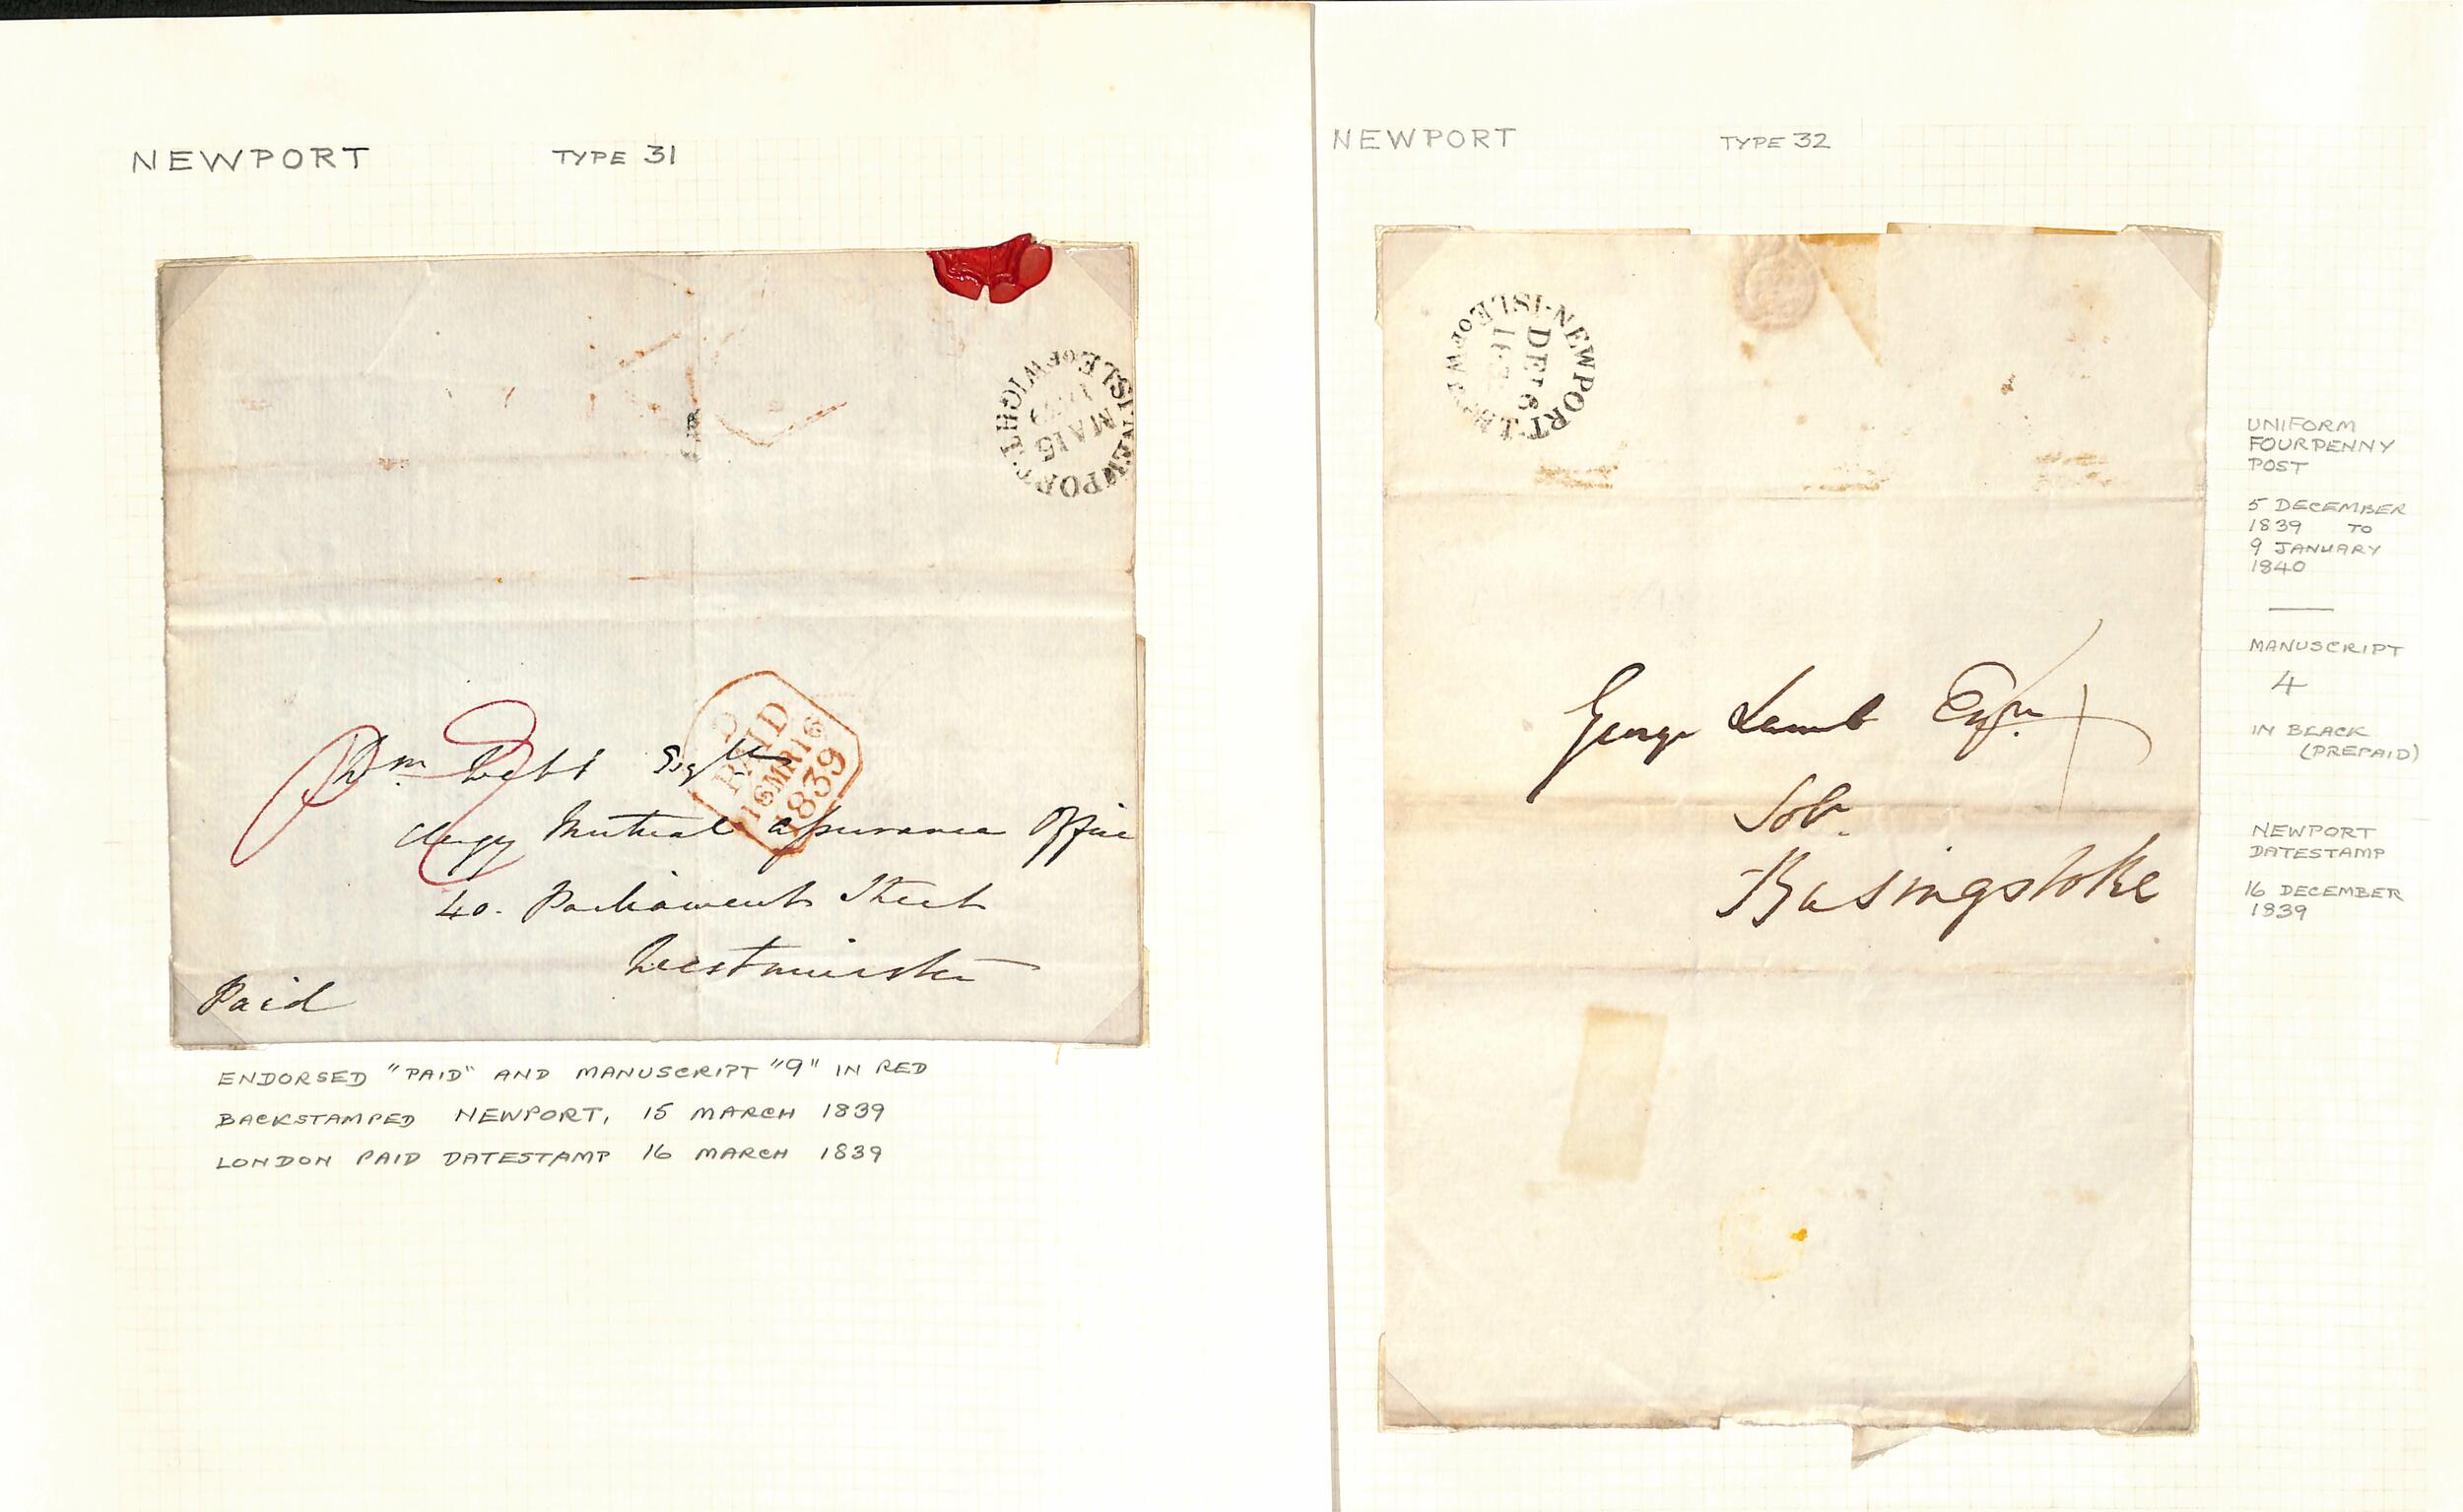 NEWPORT TYPE 31
NEWPORT·ISLE OF WIGHT
MA 15
1839
P
PAID
16MR16
1839
Wm Webb Esqre
Clergy Mutual Assurance Office
40. Parliament Street
Westminster
Paid
ENDORSED "PAID" AND MANUSCRIPT "9" IN RED
BACKSTAMPED NEWPORT, 15 MARCH 1839
LONDON PAID DATESTAMP 16 MARCH 1839
NEWPORT TYPE 32
NEWPORT·ISLE OF WIGHT
DE 16
George Lamb Esqr.
Solr.
Basingstoke
4
UNIFORM
FOURPENNY
POST
5 DECEMBER
1839 TO
9 JANUARY
1840
MANUSCRIPT
4
IN BLACK
(PREPAID)
NEWPORT
DATESTAMP
16 DECEMBER
1839